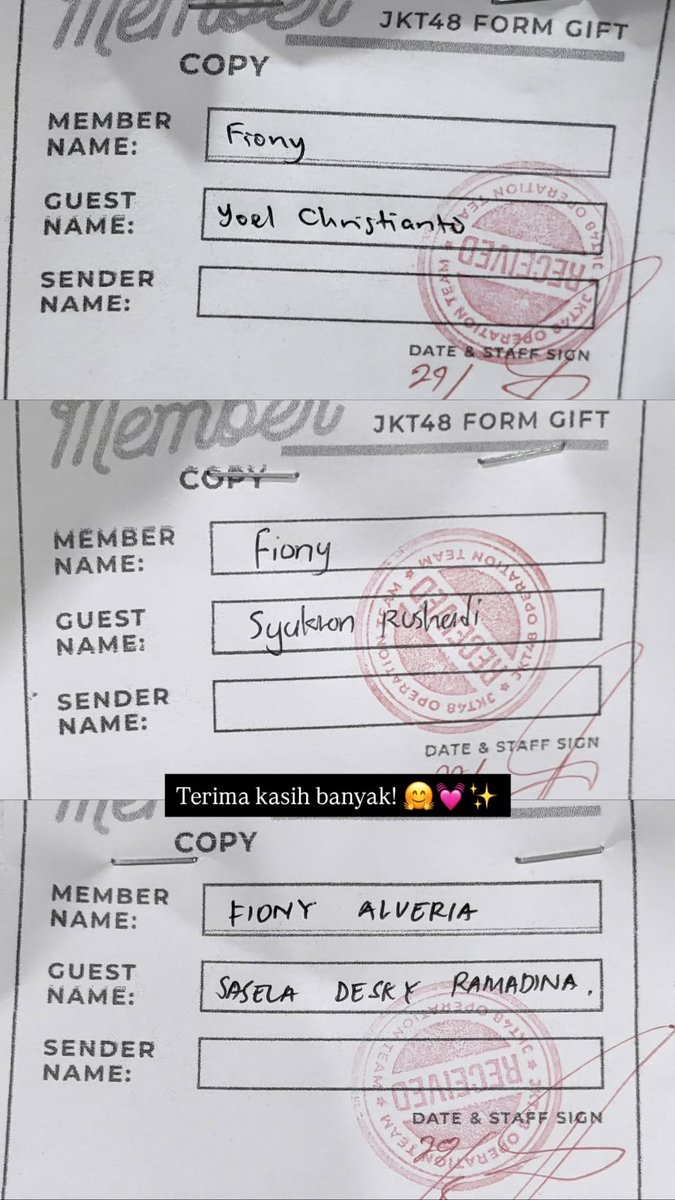 Member
JKT48 FORM GIFT
COPY
MEMBER NAME:
Fiony
GUEST NAME:
Yoel Christianto
SENDER NAME:
JKT48 OPERATION TEAM
RECEIVED
JKT48 OPERATION TEAM
DATE & STAFF SIGN
29/
Member
JKT48 FORM GIFT
COPY
MEMBER NAME:
Fiony
GUEST NAME:
Syukron Rusheidi
SENDER NAME:
JKT48 OPERATION TEAM
RECEIVED
JKT48 OPERATION
DATE & STAFF SIGN
Terima kasih banyak! 🤗💓✨
COPY
MEMBER NAME:
FIONY ALVERIA
GUEST NAME:
SASELA DESKY RAMADINA.
SENDER NAME:
JKT48 OPERATION TEAM
RECEIVED
JKT48 OPERATION TEAM
DATE & STAFF SIGN
29